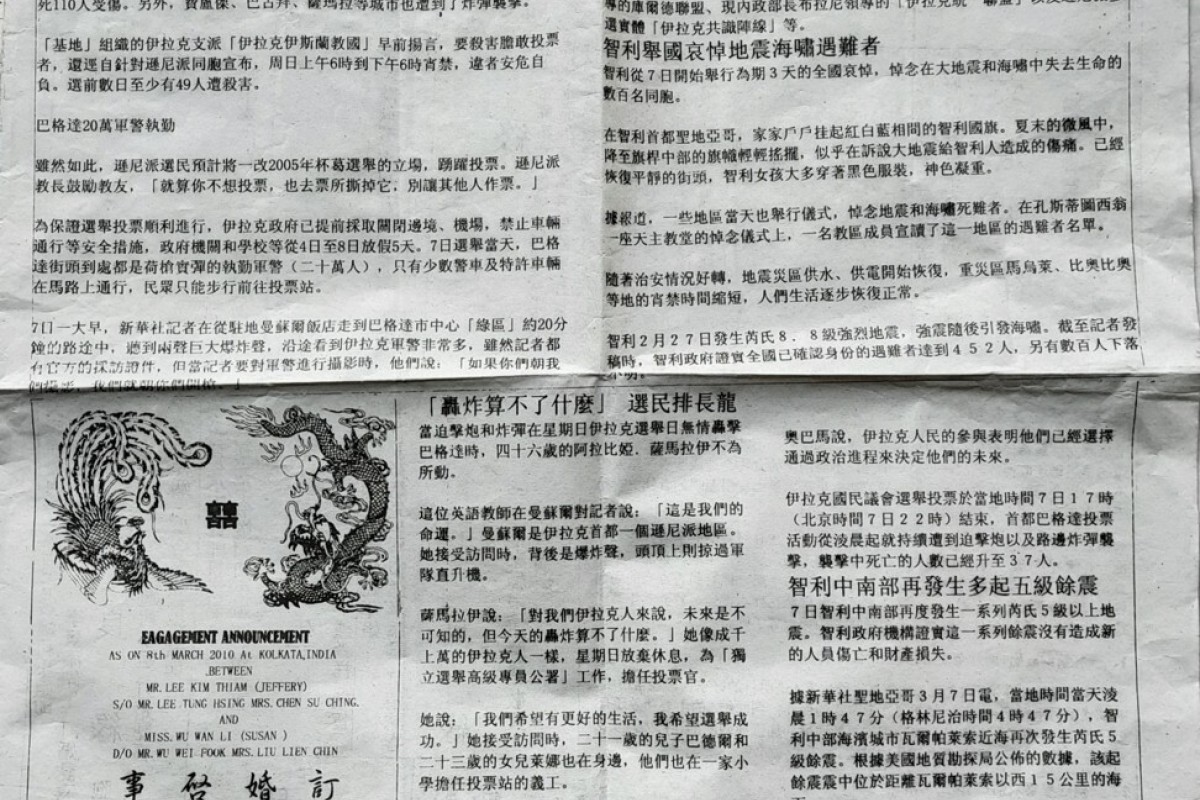 死110人受傷。另外，費盧傑、巴古拜、薩瑪拉等城市也遭到了炸彈襲擊。
「基地」組織的伊拉克支派「伊拉克伊斯蘭教國」早前揚言，要殺害膽敢投票
者，還逕自針對遜尼派同胞宣布，周日上午6時到下午6時宵禁，違者安危自
負。選前數日至少有49人遭殺害。
巴格達20萬軍警執勤
雖然如此，遜尼派選民預計將一改2005年杯葛選舉的立場，踴躍投票。遜尼派
教長鼓勵教友，「就算你不想投票，也去票所撕掉它，別讓其他人作票。」
為保證選舉投票順利進行，伊拉克政府已提前採取關閉邊境、機場，禁止車輛
通行等安全措施，政府機關和學校等從4日至8日放假5天。7日選舉當天，巴格
達街頭到處都是荷槍實彈的執勤軍警（二十萬人），只有少數警車及特許車輛
在馬路上通行，民眾只能步行前往投票站。
7日一大早，新華社記者在從駐地曼蘇爾飯店走到巴格達市中心「綠區」約20分
鐘的路途中，聽到兩聲巨大爆炸聲，沿途看到伊拉克軍警非常多，雖然記者都
有官方的採訪證件，但當記者要對軍警進行攝影時，他們說：「如果你們朝我
們攝影，我們就朝你們開槍。」
導的庫爾德聯盟、現內政部長布拉尼領導的「伊拉克統一聯盟」
選實體「伊拉克共識陣線」等。
智利舉國哀悼地震海嘯遇難者
智利從7日開始舉行為期3天的全國哀悼，悼念在大地震和海嘯中失去生命的
數百名同胞。
在智利首都聖地亞哥，家家戶戶挂起紅白藍相間的智利國旗。夏末的微風中，
降至旗桿中部的旗幟輕輕搖擺，似乎在訴說大地震給智利人造成的傷痛。已經
恢復平靜的街頭，智利女孩大多穿著黑色服裝，神色凝重。
據報道，一些地區當天也舉行儀式，悼念地震和海嘯死難者。在孔斯蒂圖西翁
一座天主教堂的悼念儀式上，一名教區成員宣讀了這一地區的遇難者名單。
隨著治安情況好轉，地震災區供水、供電開始恢復，重災區馬烏萊、比奧比奧
等地的宵禁時間縮短，人們生活逐步恢復正常。
智利２月２７日發生芮氏８．８級強烈地震，強震隨後引發海嘯。截至記者發
稿時，智利政府證實全國已確認身份的遇難者達到４５２人，另有數百人下落
不明。
囍
EAGAGEMENT ANNOUNCEMENT
AS ON 8th MARCH 2010 At KOLKATA,INDIA
.BETWEEN
MR.LEE KIM THIAM (JEFFERY)
S/O MR.LEE TUNG HSING MRS.CHEN SU CHING.
AND
MISS.WU WAN LI (SUSAN )
D/O MR.WU WEI FOOK MRS.LIU LIEN CHIN
事 啓 婚 訂
「轟炸算不了什麼」 選民排長龍
當迫擊炮和炸彈在星期日伊拉克選舉日無情轟擊
巴格達時，四十六歲的阿拉比姬．薩馬拉伊不為
所動。
這位英語教師在曼蘇爾對記者說：「這是我們的
命運。」曼蘇爾是伊拉克首都一個遜尼派地區。
她接受訪問時，背後是爆炸聲，頭頂上則掠過軍
隊直升機。
薩馬拉伊說：「對我們伊拉克人來說，未來是不
可知的，但今天的轟炸算不了什麼。」她像成千
上萬的伊拉克人一樣，星期日放棄休息，為「獨
立選舉高級專員公署」工作，擔任投票官。
她說：「我們希望有更好的生活，我希望選舉成
功。」她接受訪問時，二十一歲的兒子巴德爾和
二十三歲的女兒萊娜也在身邊，他們也在一家小
學擔任投票站的義工。
奧巴馬說，伊拉克人民的參與表明他們已經選擇
通過政治進程來決定他們的未來。
伊拉克國民議會選舉投票於當地時間７日１７時
（北京時間７日２２時）結束，首都巴格達投票
活動從淩晨起就持續遭到迫擊炮以及路邊炸彈襲
擊，襲擊中死亡的人數已經升至３７人。
智利中南部再發生多起五級餘震
７日智利中南部再度發生一系列芮氏５級以上地
震。智利政府機構證實這一系列餘震沒有造成新
的人員傷亡和財產損失。
據新華社聖地亞哥３月７日電，當地時間當天淩
晨１時４７分（格林尼治時間４時４７分），智
利中部海濱城市瓦爾帕萊索近海再次發生芮氏５
級餘震。根據美國地質勘探局公佈的數據，該起
餘震震中位於距離瓦爾帕萊索以西１５公里的海